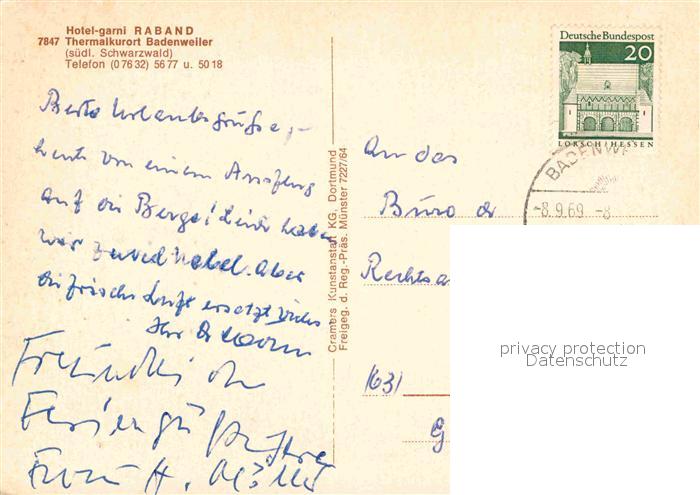 Hotel-garni RABAND
7847 Thermalkurort Badenweiler
(südl. Schwarzwald)
Telefon (0 76 32) 56 77 u. 50 18
Deutsche Bundespost
20
LORSCH/HESSEN
BADENW
-8.9.69 -8
Beste Urlaubsgrüße,-
heute von einem Ausflug
auf die Berge! Leider haben
wir zuviel Nebel. Aber
die frische Luft ersetzt vieles
Ihr
Freundliche
Feriengrüße Ihre
Frau H.
Cramers Kunstanstalt KG, Dortmund
Freigeg. d. Reg.-Präs. Münster 7227/64
An das
Büro der
Rechtsa
1631
G
privacy protection
Datenschutz